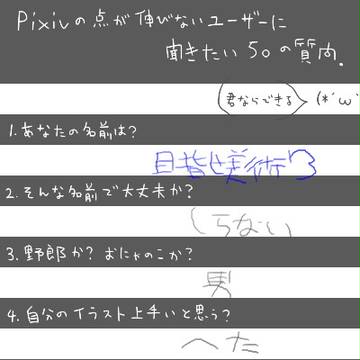 Pixivの点が伸びないユーザーに
聞きたい50の質問.
君ならできる (*´ω`
1.あなたの名前は?
目指せ美術3
2.そんな名前で大丈夫か?
しらない
3.野郎か?おにゃのこか?
男
4.自分のイラスト上手いと思う?
へた